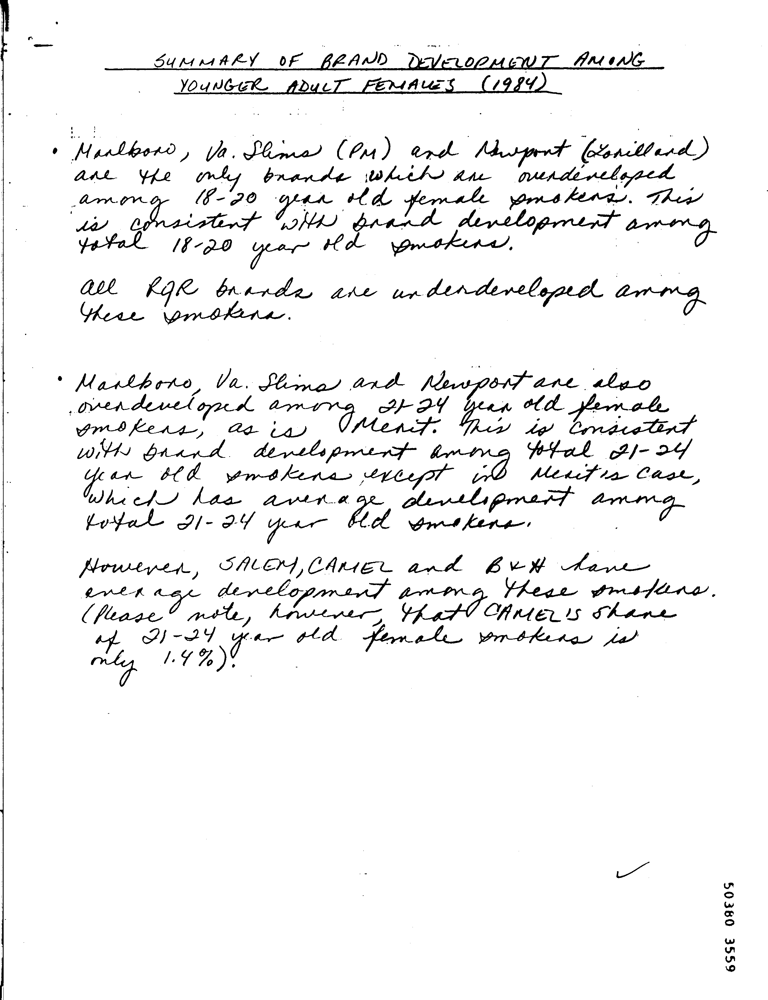 SUMMARY OF BRAND DEVELOPMENT AMONG
YOUNGER ADULT FEMALES (1984)
• Marlboro, Va. Slims (PM) and Newport (Lorillard)
are the only brands which are overdeveloped
among 18-20 year old female smokers. This
is consistent with brand development among
total 18-20 year old smokers.
All RJR brands are underdeveloped among
these smokers.
• Marlboro, Va. Slims and Newport are also
overdeveloped among 21-24 year old female
smokers, as is Merit. This is consistent
with brand development among total 21-24
year old smokers except in Merit's case,
which has average development among
total 21-24 year old smokers.
However, SALEM, CAMEL and B&H have
average development among these smokers.
(Please note, however, that CAMEL'S share
of 21-24 year old female smokers is
only 1.4%).
50380 3559